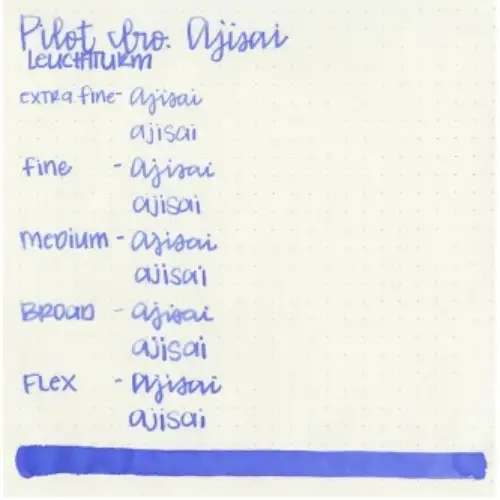 Pilot Iro: Ajisai
LEUCHTTURM
EXTRA fine - ajisai
ajisai
fine - Ajisai
ajisai
MEDIUM - ajisai
ajisai
BROAD - ajisai
ajisai
FLEX - Ajisai
ajisai